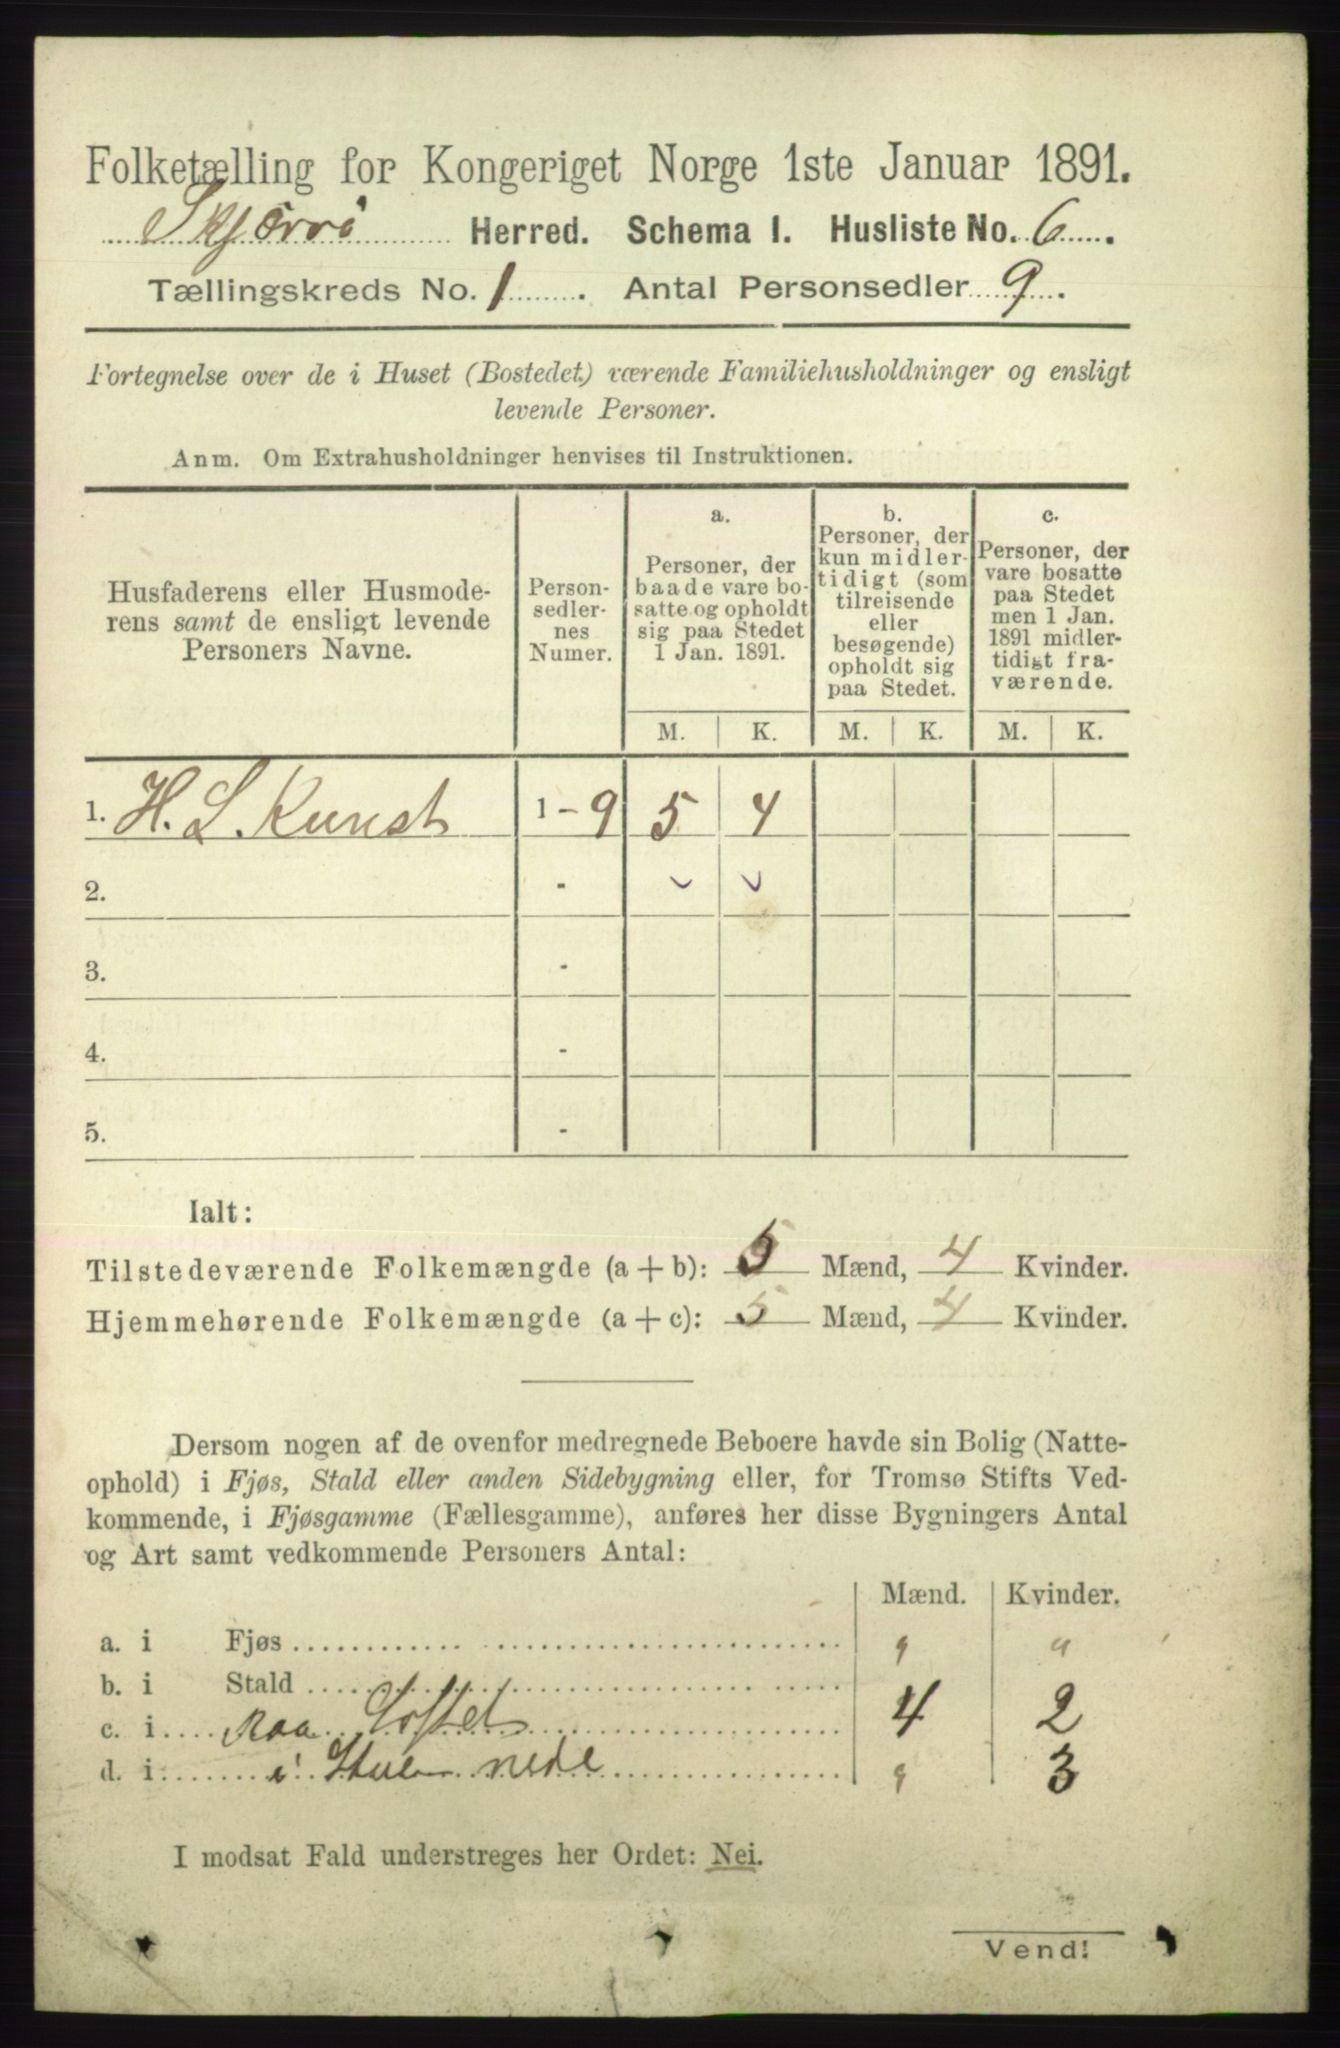 Folketælling for Kongeriget Norge 1ste Januar 1891.
Skjervø Herred. Schema I. Husliste No. 6.
Tællingskreds No. 1. Antal Personsedler 9.
Fortegnelse over de i Huset (Bostedet) værende Familiehusholdninger og ensligt
levende Personer.
Anm. Om Extrahusholdninger henvises til Instruktionen.
Husfaderens eller Husmode-
rens samt de ensligt levende
Personers Navne.
Person-
sedler-
nes
Numer.
a.
Personer, der
baade vare bo-
satte og opholdt
sig paa Stedet
1 Jan. 1891.
b.
Personer, der
kun midler-
tidigt (som
tilreisende
eller
besøgende)
opholdt sig
paa Stedet.
c.
Personer, der
vare bosatte
paa Stedet
men 1 Jan.
1891 midler-
tidigt fra-
værende.
M. K. M. K. M. K.
1. H. L. Kunst 1 - 9 5 4
2. -
3. -
4. -
5. -
Ialt:
Tilstedeværende Folkemængde (a + b): 5 Mænd, 4 Kvinder.
Hjemmehørende Folkemængde (a + c): 5 Mænd, 4 Kvinder.
Dersom nogen af de ovenfor medregnede Beboere havde sin Bolig (Natte-
ophold) i Fjøs, Stald eller anden Sidebygning eller, for Tromsø Stifts Ved-
kommende, i Fjøsgamme (Fællesgamme), anføres her disse Bygningers Antal
og Art samt vedkommende Personers Antal:
Mænd. Kvinder.
a. i Fjøs " "
b. i Stald
c. i Loftet 4 2
d. i i Stuen nede " 3
I modsat Fald understreges her Ordet: Nei.
Vend!